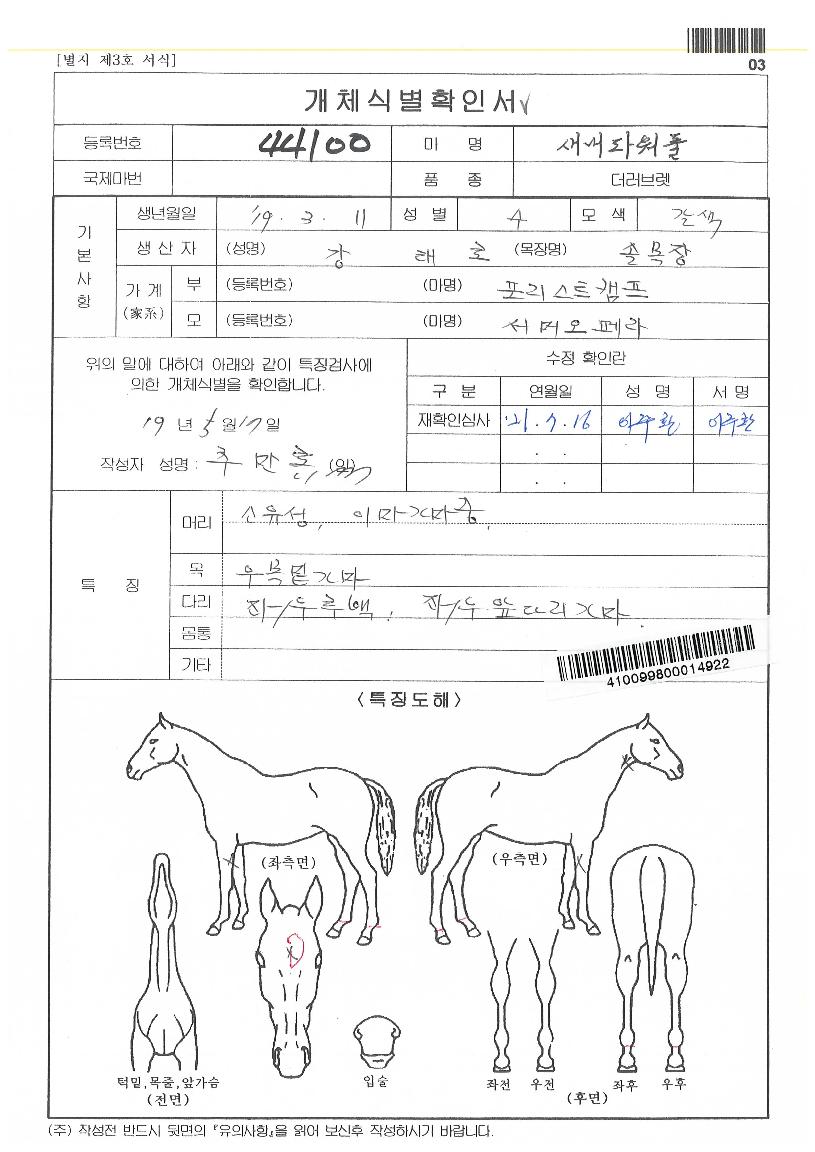 03
[별지 제3호 서식]
개체식별확인서 √
등록번호 44100 마 명 새내파워풀
국제마번 품 종 더러브렛
기본사항
생년월일 '19. 3. 11 성 별 수 모 색 갈색
생 산 자 (성명) 강 래 호 (목장명) 솔목장
가 계 (家系)
부 (등록번호) (마명) 포리스트캠프
모 (등록번호) (마명) 서머오페라
위의 말에 대하여 아래와 같이 특징검사에
의한 개체식별을 확인합니다.
19 년 5 월 17 일
작성자 성명 : 추 만 호 (인)
수정 확인란
구 분 연월일 성 명 서 명
재확인심사 '21. 7. 16 이주환 이주환
. .
. .
특 징
머리 소유성, 이마가마중,
목 우목밑가마
다리 좌/우후백, 좌/우앞다리가마.
몸통
기타
410099800014922
<특징도해>
(좌측면) (우측면)
턱밑,목줄,앞가슴
(전면)
입술
좌전 우전 좌후 우후
(후면)
(주) 작성전 반드시 뒷면의 『유의사항』을 읽어 보신후 작성하시기 바랍니다.